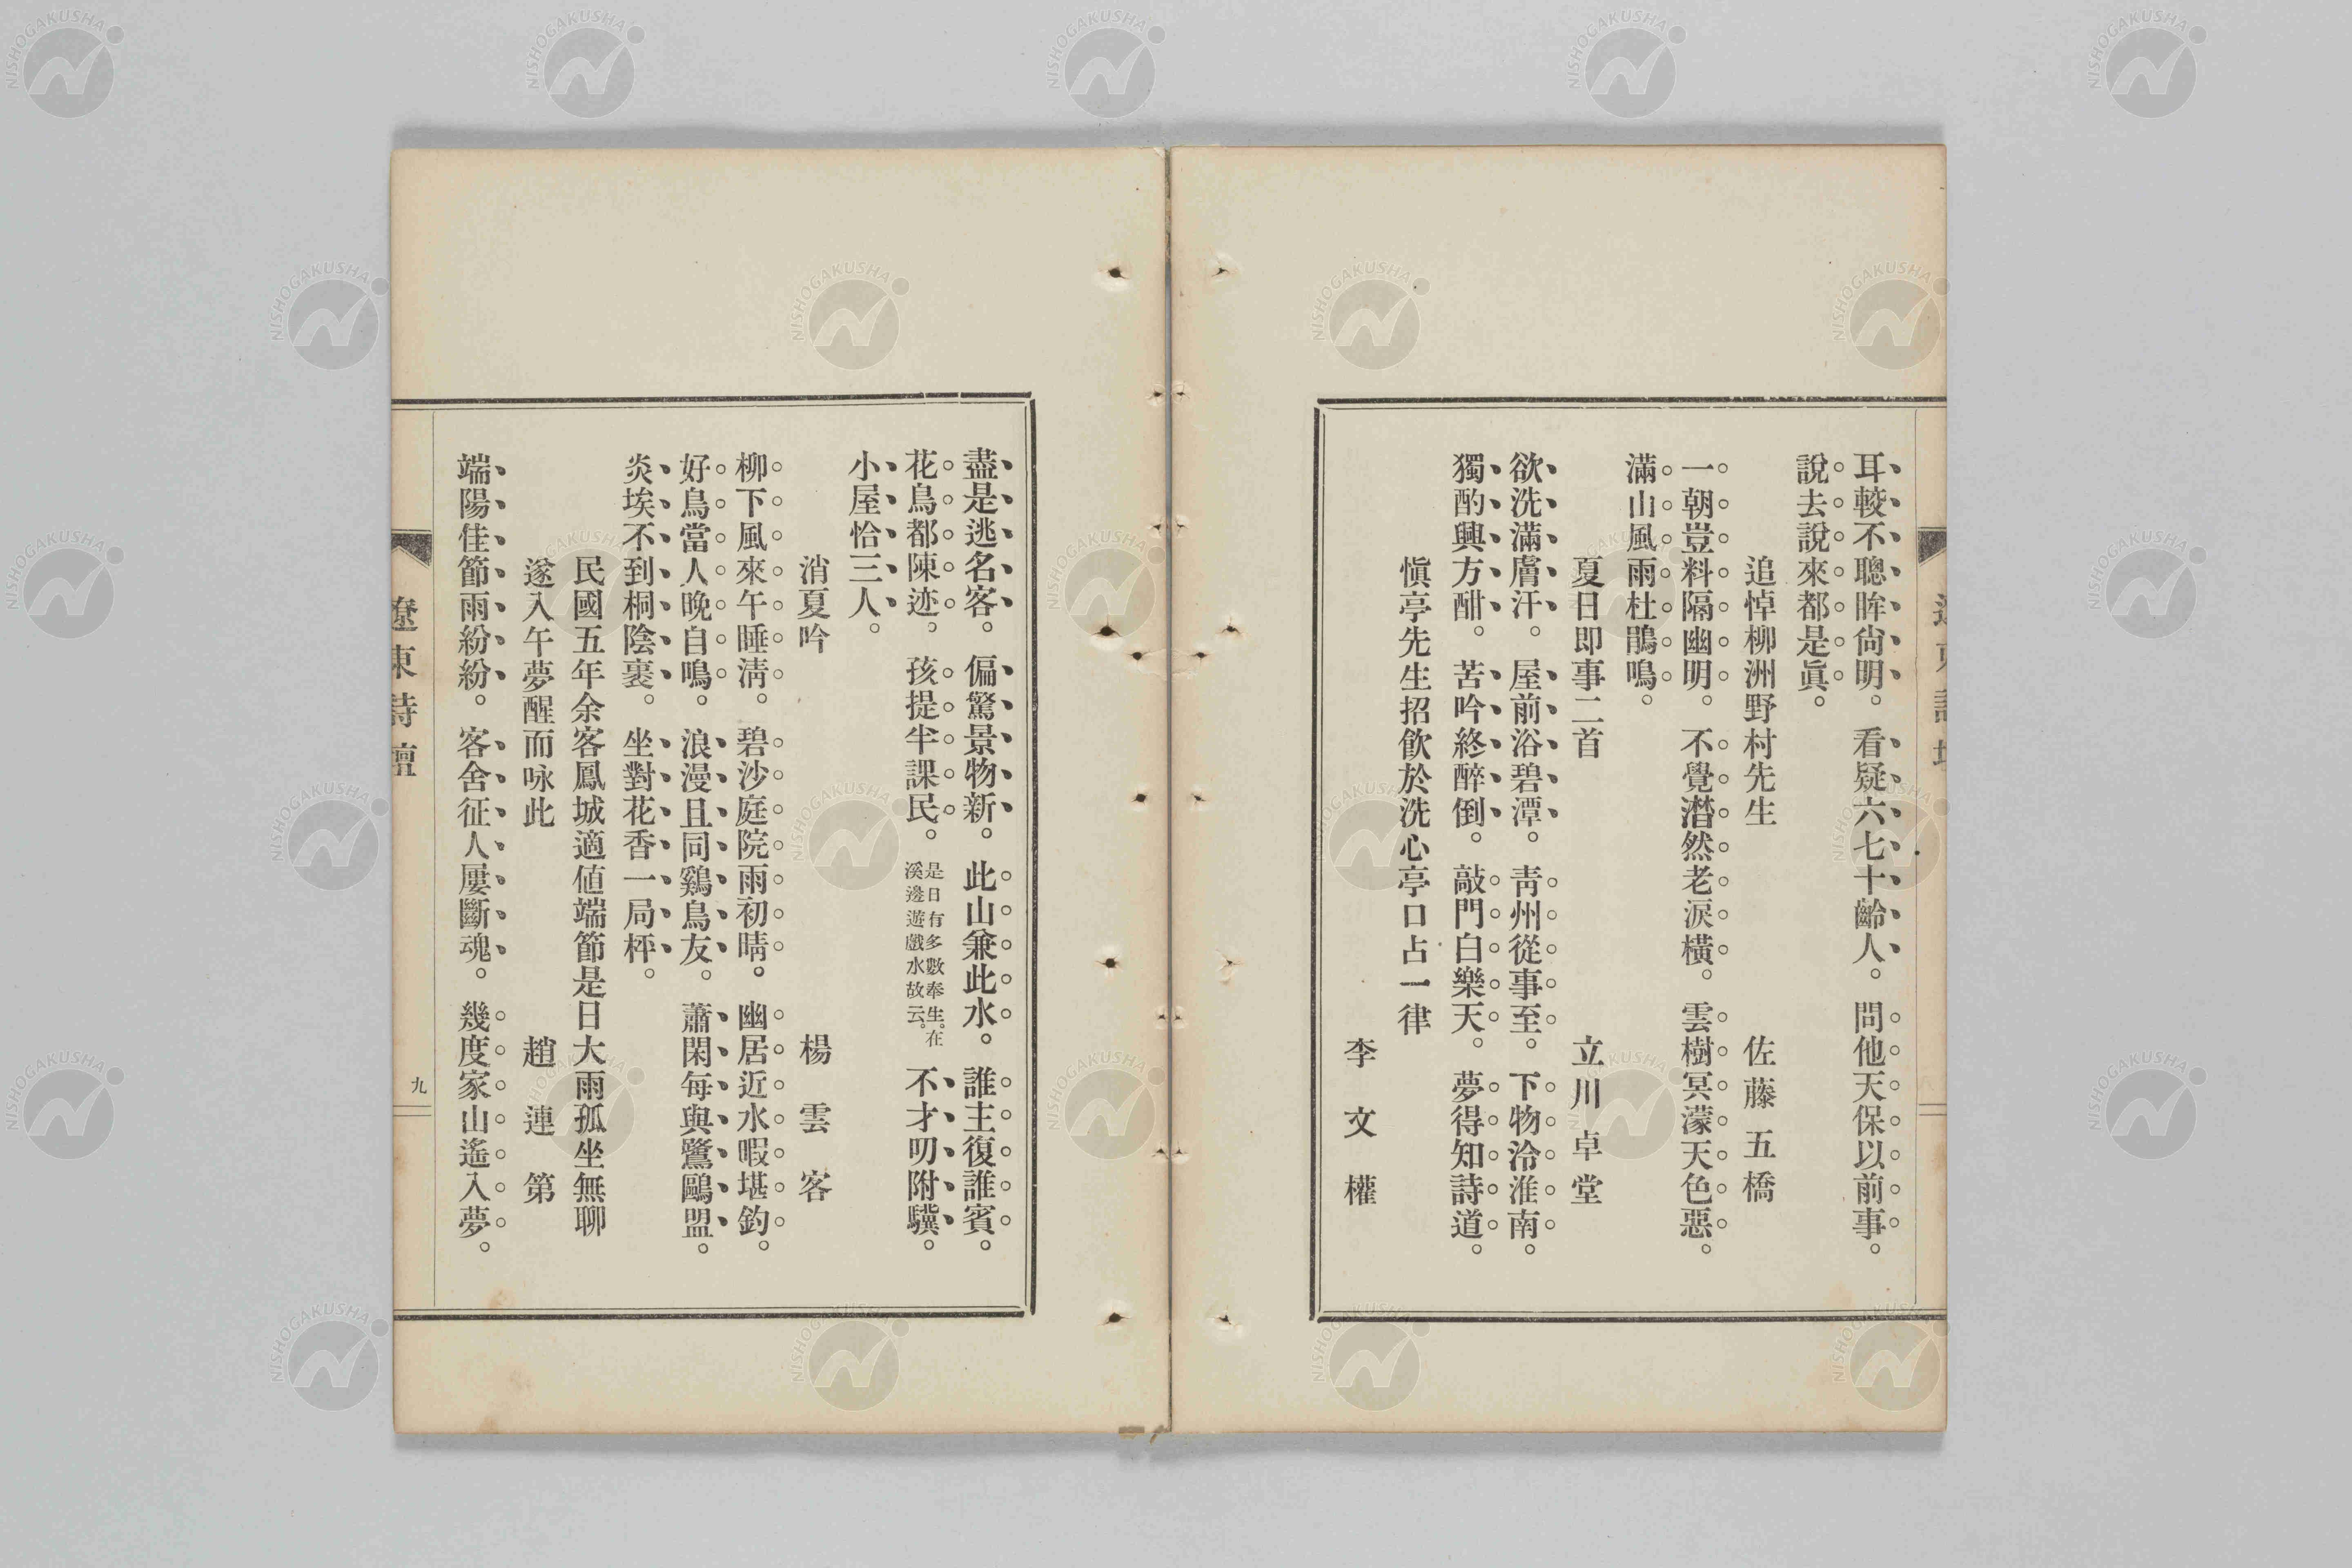 耳較不聰眸尙明。看疑六七十齡人。問他天保以前事。
說去說來都是眞。
追悼柳洲野村先生　佐藤五橋
一朝豈料隔幽明。不覺潸然老淚橫。雲樹冥濛天色惡。
滿山風雨杜鵑鳴。
夏日即事二首　立川卓堂
欲洗滿膚汗。屋前浴碧潭。靑州從事至。下物泠淮南。
獨酌興方酣。苦吟終醉倒。敲門白樂天。夢得知詩道。
愼亭先生招飮於洗心亭口占一律
李文權
盡是逃名客。偏驚景物新。此山兼此水。誰主復誰賓。
花鳥都陳迹。孩提半課民。是日有多數奉生。在溪邊遊戲水故云。不才叨附驥。
小屋恰三人。
消夏吟　楊雲客
柳下風來午睡淸。碧沙庭院雨初晴。幽居近水暇堪釣。
好鳥當人晚自鳴。浪漫且同鷄鳥友。蕭閑每與鷺鷗盟。
炎埃不到桐陰裏。坐對花香一局枰。
民國五年余客鳳城適値端節是日大雨孤坐無聊
遂入午夢醒而咏此　趙連第
端陽佳節雨紛紛。客舍征人屢斷魂。幾度家山遙入夢。
遼東詩壇
九
NISHOGAKUSHA